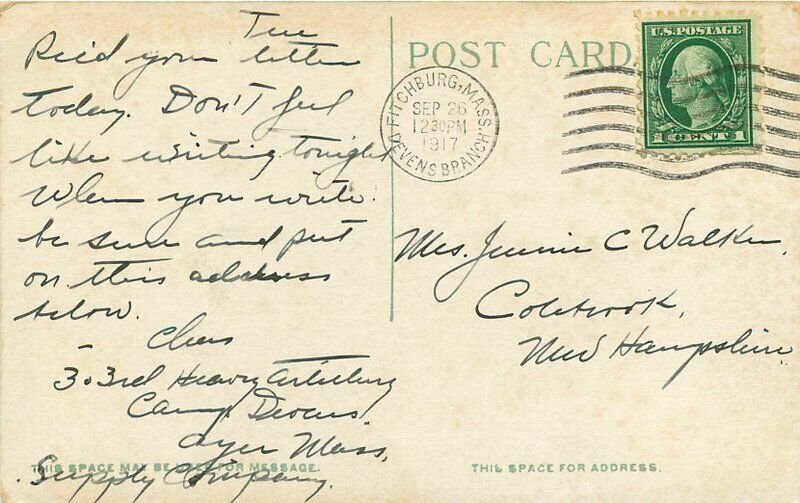 Tue
Rec'd your letter
today. Don't feel
like writing tonight
When you write.
be sure and put
on this address
below.
- Chas
303rd Heavy Artillery
Camp Devens
Ayer Mass.
Supply Company.
THIS SPACE MAY BE USED FOR MESSAGE.
POST CARD
FITCHBURG, MASS.
SEP 26
1230PM
1917
DEVENS BRANCH
U.S. POSTAGE
1 CENT 1
Mrs. Jennie C Walker.
Colebrook,
New Hampshire
THIS SPACE FOR ADDRESS.